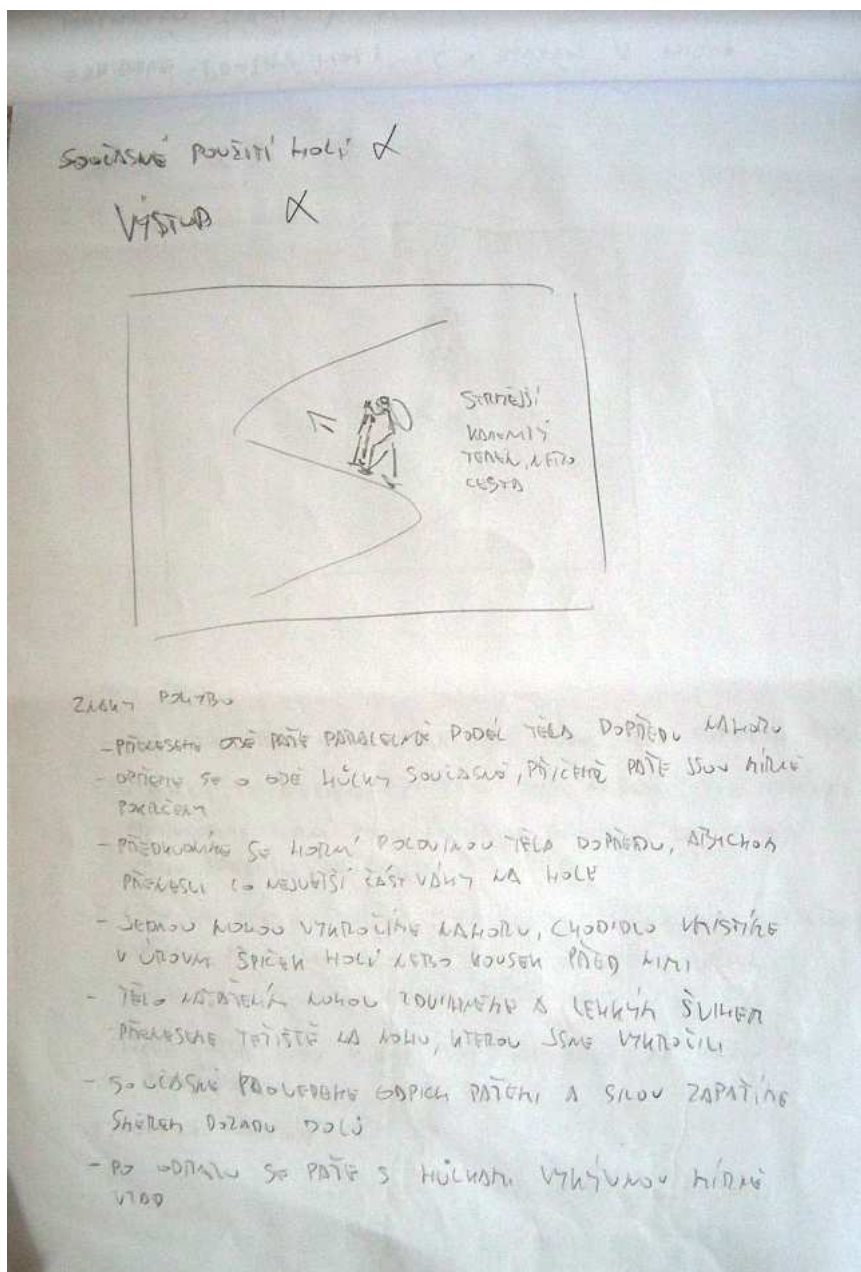 SOUČASNÉ POUŽITÍ HOLÍ α
VÝSTUP α
STRMĚJŠÍ
KAMENITÝ
TERÉN, NEBO
CESTA
ZNAKY POHYBU
- PŘENESEME OBĚ PAŽE PARALELNĚ PODÉL TĚLA DOPŘEDU NAHORU
- OPŘEME SE O OBĚ HŮLKY SOUČASNĚ, PŘIČEMŽ PAŽE JSOU MÍRNĚ
POKRČENY
- PŘEDKLONÍME SE HORNÍ POLOVINOU TĚLA DOPŘEDU, ABYCHOM
PŘENESLI CO NEJVĚTŠÍ ČÁST VÁHY NA HOLE
- JEDNOU NOHOU VYKROČÍME NAHORU, CHODIDLO UMÍSTÍME
V ÚROVNI ŠPIČEK HOLÍ NEBO KOUSEK PŘED NIMI
- TĚLO NATAŽENÍM NOHOU ZDVIHNEME A LEHKÝM ŠVIHEM
PŘENESEME TĚŽIŠTĚ NA NOHU, KTEROU JSME VYKROČILI
- SOUČASNĚ PROVEDEME ODPICH PAŽEMI A SILOU ZAPAŽÍME
SMĚREM DOZADU DOLŮ
- PO ODRAZU SE PAŽE S HŮLKAMI VYKÝVNOU MÍRNĚ
VZAD